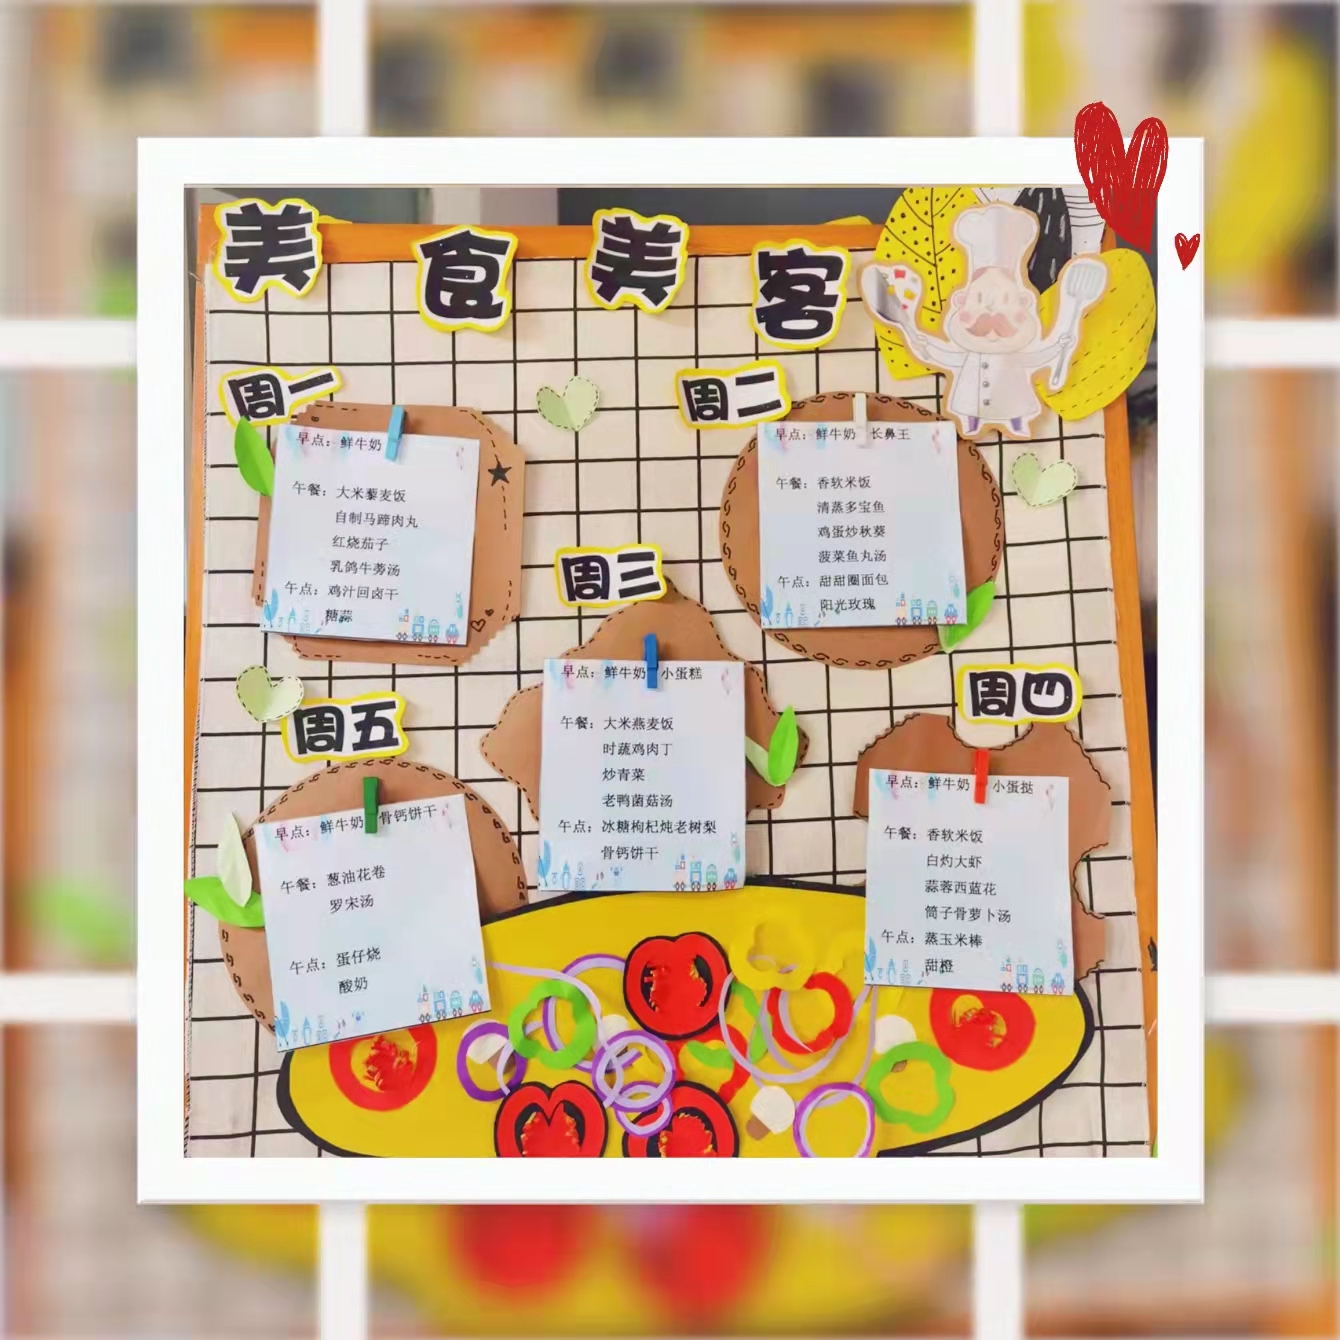 美食美客
周一
早点：鲜牛奶
午餐：大米藜麦饭
自制马蹄肉丸
红烧茄子
乳鸽牛蒡汤
午点：鸡汁回卤干
糖蒜
周二
早点：鲜牛奶 长鼻王
午餐：香软米饭
清蒸多宝鱼
鸡蛋炒秋葵
菠菜鱼丸汤
午点：甜甜圈面包
阳光玫瑰
周三
早点：鲜牛奶 小蛋糕
午餐：大米燕麦饭
时蔬鸡肉丁
炒青菜
老鸭菌菇汤
午点：冰糖枸杞炖老树梨
骨钙饼干
周四
早点：鲜牛奶 小蛋挞
午餐：香软米饭
白灼大虾
蒜蓉西蓝花
筒子骨萝卜汤
午点：蒸玉米棒
甜橙
周五
早点：鲜牛奶 骨钙饼干
午餐：葱油花卷
罗宋汤
午点：蛋仔烧
酸奶